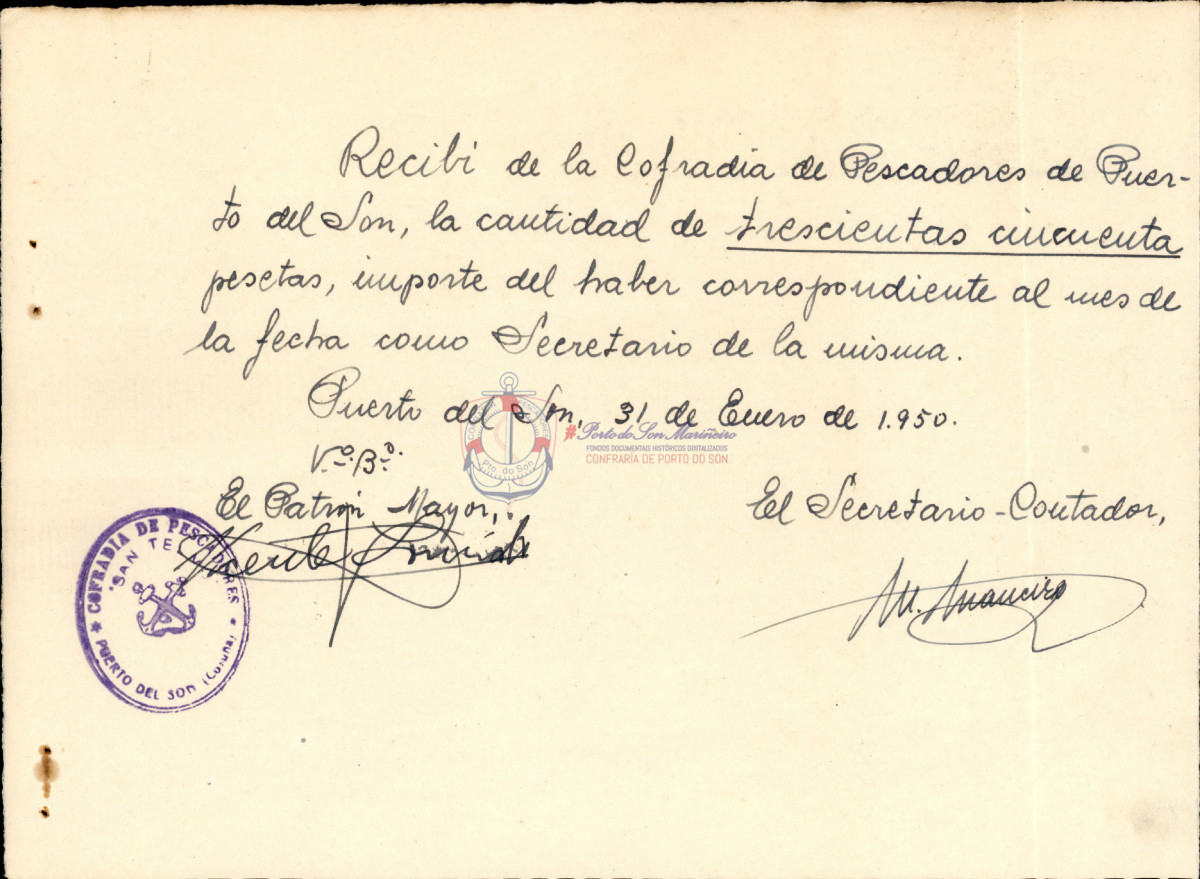 Recibí de la Cofradía de Pescadores de Puer-
to del Son, la cantidad de trescientas cincuenta
pesetas, importe del haber correspondiente al mes de
la fecha como Secretario de la misma.
Puerto del Son, 31 de Enero de 1.950.
#Porto do Son Mariñeiro
FONDOS DOCUMENTAIS HISTÓRICOS DIXITALIZADOS
CONFRARÍA DE PORTO DO SON
Pto. do Son
Vº. Bº.
El Patrón Mayor,
El Secretario-Contador,
Vicente
M.
COFRADIA DE PESCADORES
"SAN TE
PUERTO DEL SON (Coruña)